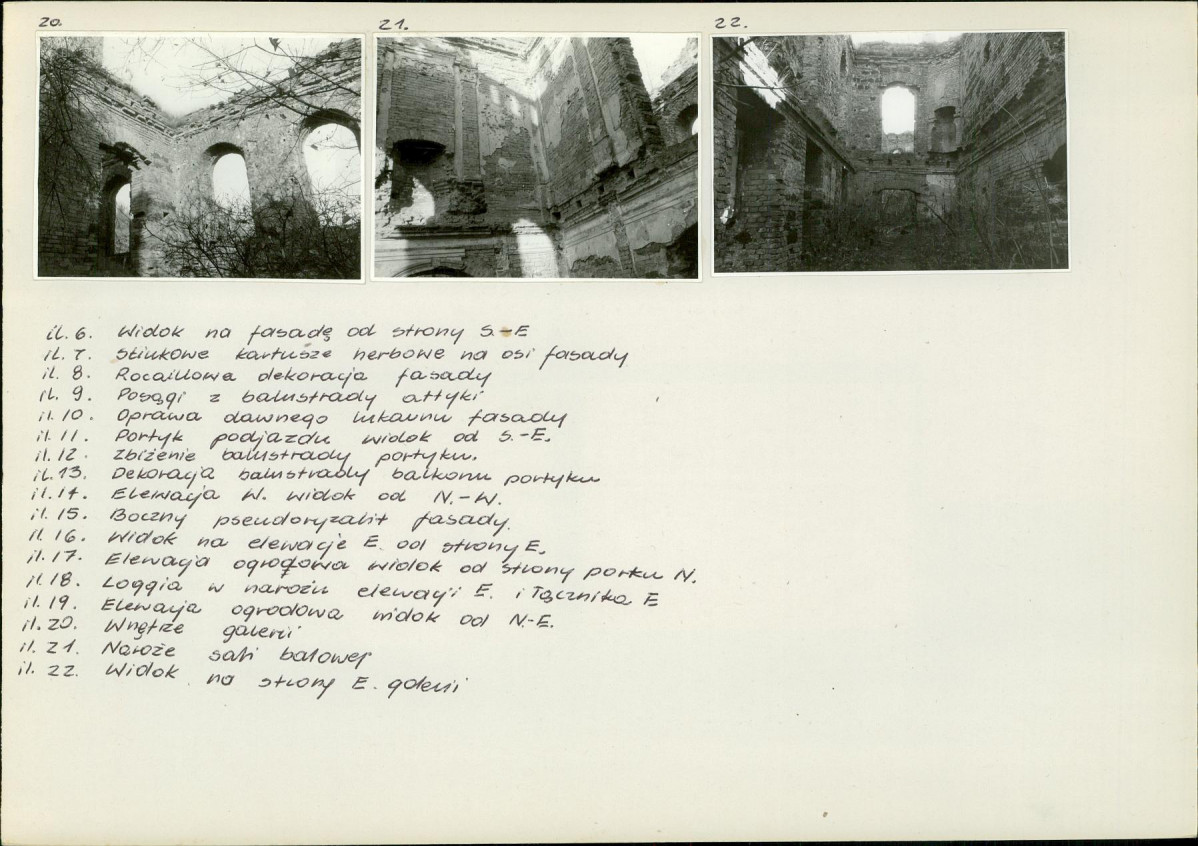 20.
21.
22.
il. 6. Widok na fasadę od strony S.-E
il. 7. Stiukowe kartusze herbowe na osi fasady
il. 8. Rocaillowa dekoracja fasady
il. 9. Posągi z balustrady attyki
il. 10. Oprawa dawnego lukarnu fasady
il. 11. Portyk podjazdu widok od S.-E.
il. 12. Zbiżenie balustrady portyku.
il. 13. Dekoracja balustrady balkonu portyku
il. 14. Elewacja W. widok od N.-W.
il. 15. Boczny pseudoryzalit fasady.
il. 16. Widok na elewacje E. od strony E.
il. 17. Elewacja ogrodowa widok od strony parku N.
il. 18. Loggia w narożu elewacji E. i łącznika E
il. 19. Elewacja ogrodowa widok od N.-E.
il. 20. Wnętrze galerii
il. 21. Naroże sali balowej
il. 22. Widok na strony E. galerii